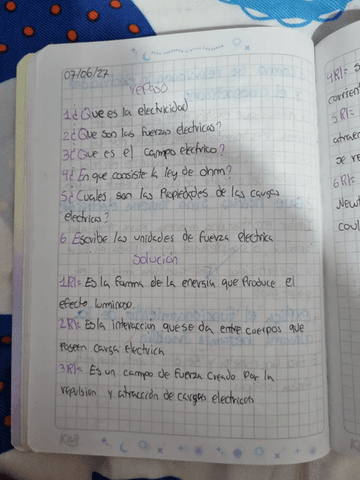 07/06/22
repaso
1¿Que es la electricidad
2¿Que son las fuerzas electricas?
3¿Que es el campo electrico?
4¿En que consiste la ley de ohm?
5¿Cuales son las Propiedades de las cargas
electricas?
6 Escribe las unidades de fuerza electrica
Solución
1R/= Es la forma de la energia que Produce el
efecto luminoso.
2R/= Es la interaccion que se da entre cuerpos que
Poseen carga electrica
3R/= Es un campo de fuerza creado Por la
repulsion y atracción de cargas electricas
4R/=
corrien
5R/=
atrave
se re
6R/=
Newt
coul